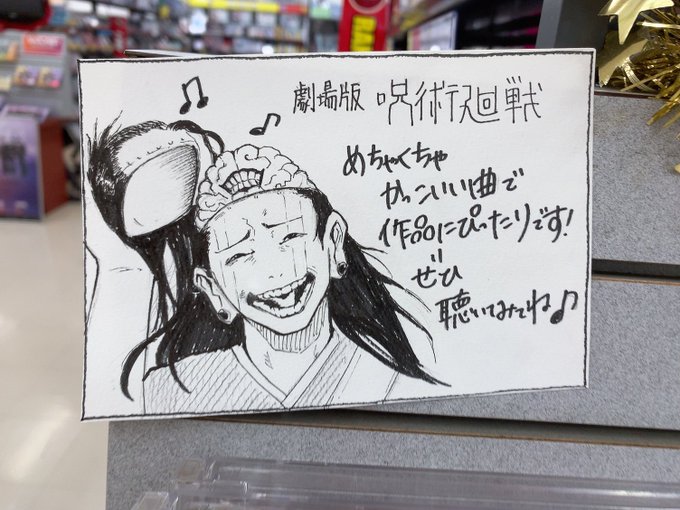 劇場版 呪術廻戦
めちゃくちゃ
かっこいい曲で
作品にぴったりです!
ぜひ
聴いてみてね♪